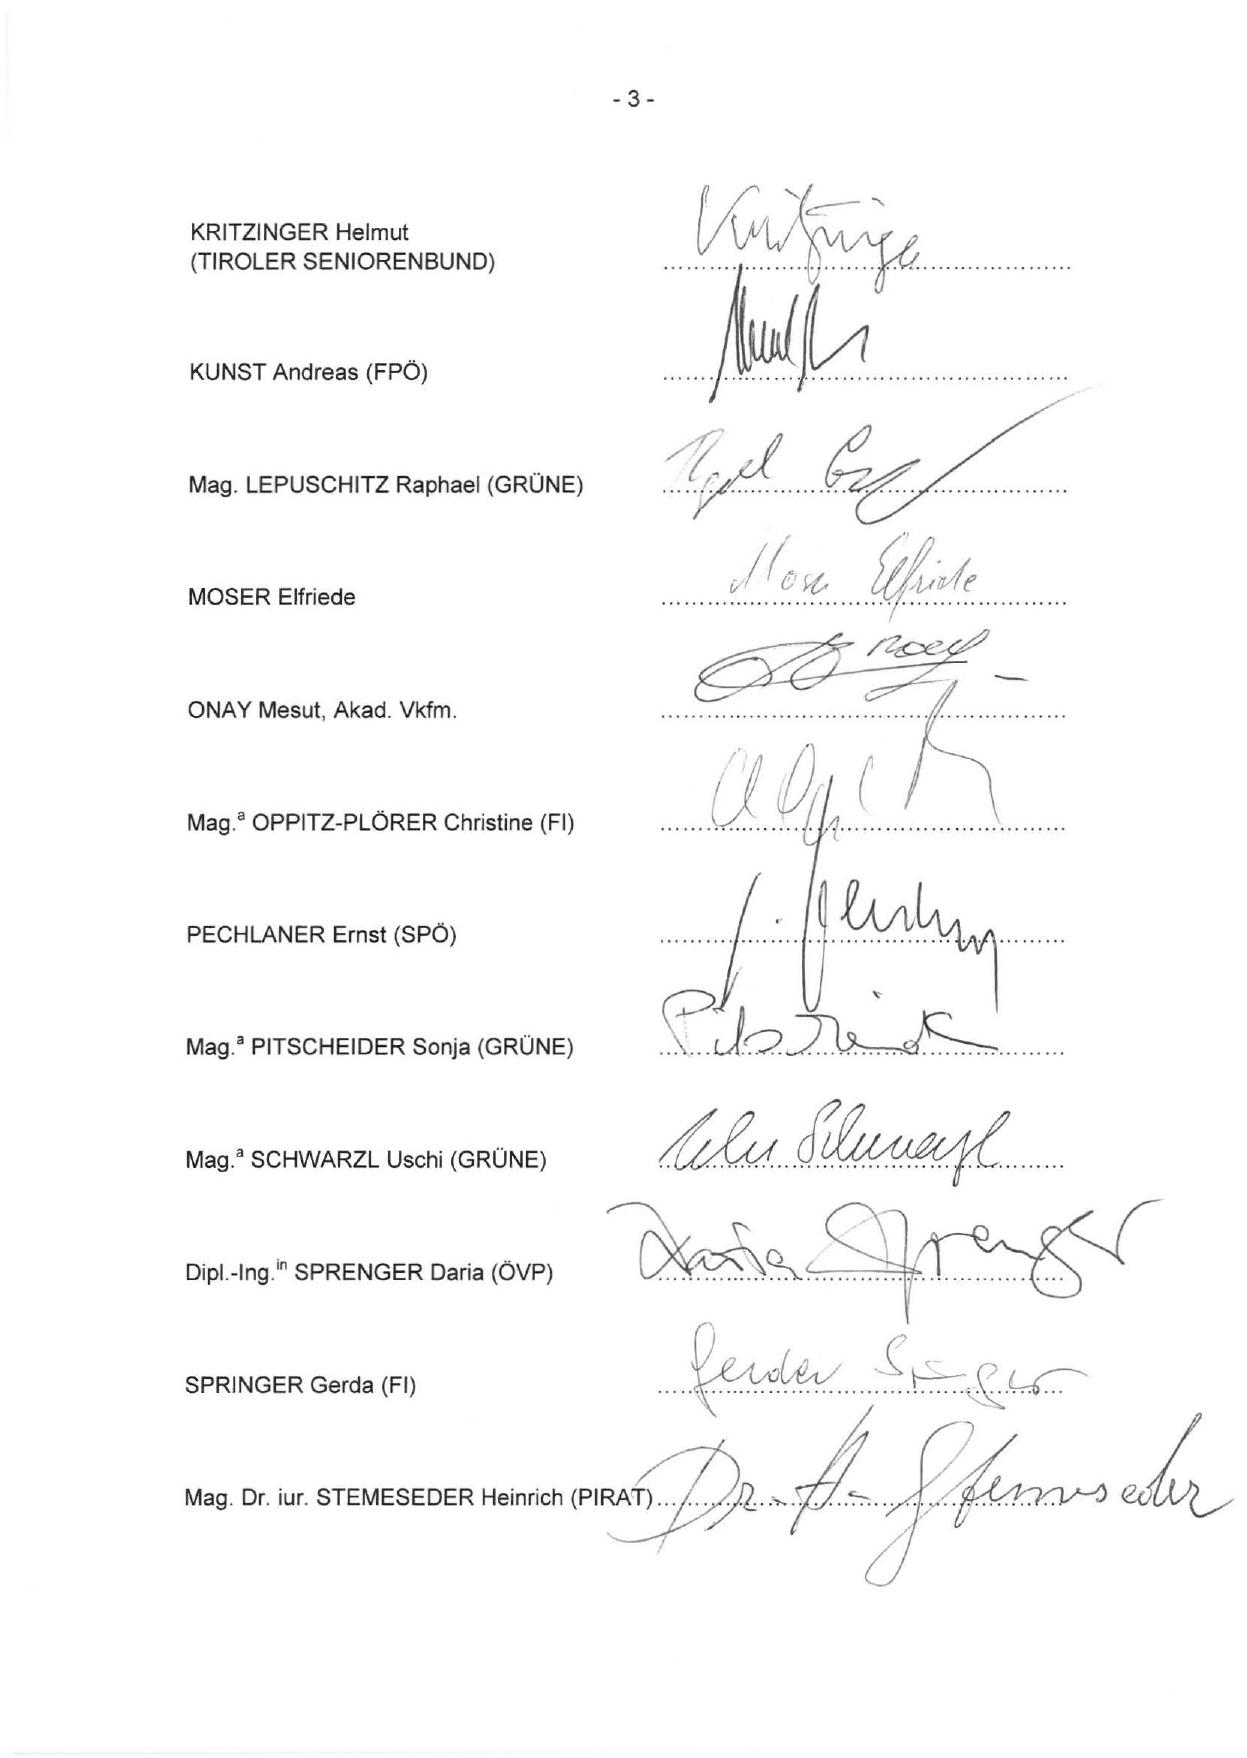 - 3 -
KRITZINGER Helmut
(TIROLER SENIORENBUND)
Kritzinger
KUNST Andreas (FPÖ)
Mag. LEPUSCHITZ Raphael (GRÜNE)
MOSER Elfriede
Moser Elfriede
ONAY Mesut, Akad. Vkfm.
Mag.ª OPPITZ-PLÖRER Christine (FI)
PECHLANER Ernst (SPÖ)
Mag.ª PITSCHEIDER Sonja (GRÜNE)
Mag.ª SCHWARZL Uschi (GRÜNE)
Uschi Schwarzl
Dipl.-Ing.in SPRENGER Daria (ÖVP)
Daria Sprenger
SPRINGER Gerda (FI)
Gerda
Mag. Dr. iur. STEMESEDER Heinrich (PIRAT)
Dr. H. Stemeseder